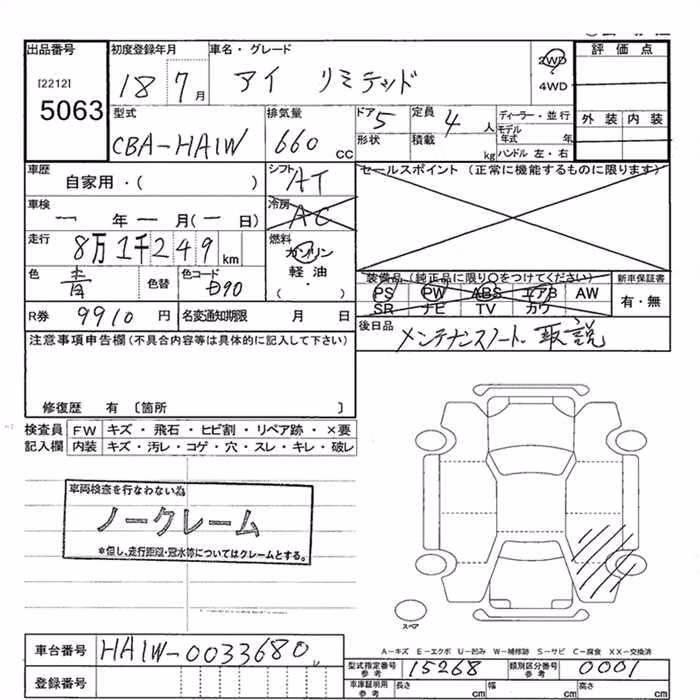 出品番号 初度登録年月 車名・グレード 2WD 評価点
[2212] 18 7月 アイ リミテッド 4WD
5063 型式 排気量 ドア 5 定員 4人 ディーラー・並行 外装 内装
CBA-HA1W 660 cc 形状 積載 kg モデル年式 年
ハンドル 左・右
車歴 シフト AT セールスポイント (正常に機能するものに限ります)
自家用・( )
車検 冷房 AC
ー年ー月(ー日)
走行 8万1千249km 燃料 ガソリン 装備品(純正品に限り○をつけてください) 新車保証書
色 青 色替 色コード D90 軽油 PS PW ABS エアB AW 有・無
・( ) SR ナビ TV カワ
R券 9910円 名変通知期限 月 日 後日品 メンテナンスノート、取説
注意事項申告欄(不具合内容等は具体的に記入して下さい)
修復歴 有 〔箇所 〕
検査員 FW キズ・飛石・ヒビ割・リペア跡・×要
記入欄 内装 キズ・汚レ・コゲ・穴・スレ・キレ・破レ
車両検査を行なわない為
ノークレーム
*但し、走行距離・冠水等についてはクレームとする。
スペア
A-キズ E-エクボ U-凹み W-補修跡 S-サビ C-腐食 XX-交換済
車台番号 HA1W-0033680 型式指定番号 参考 15268 類別区分番号 参考 0001
登録番号 車庫証明用 参考 長さ cm 幅 cm 高さ cm